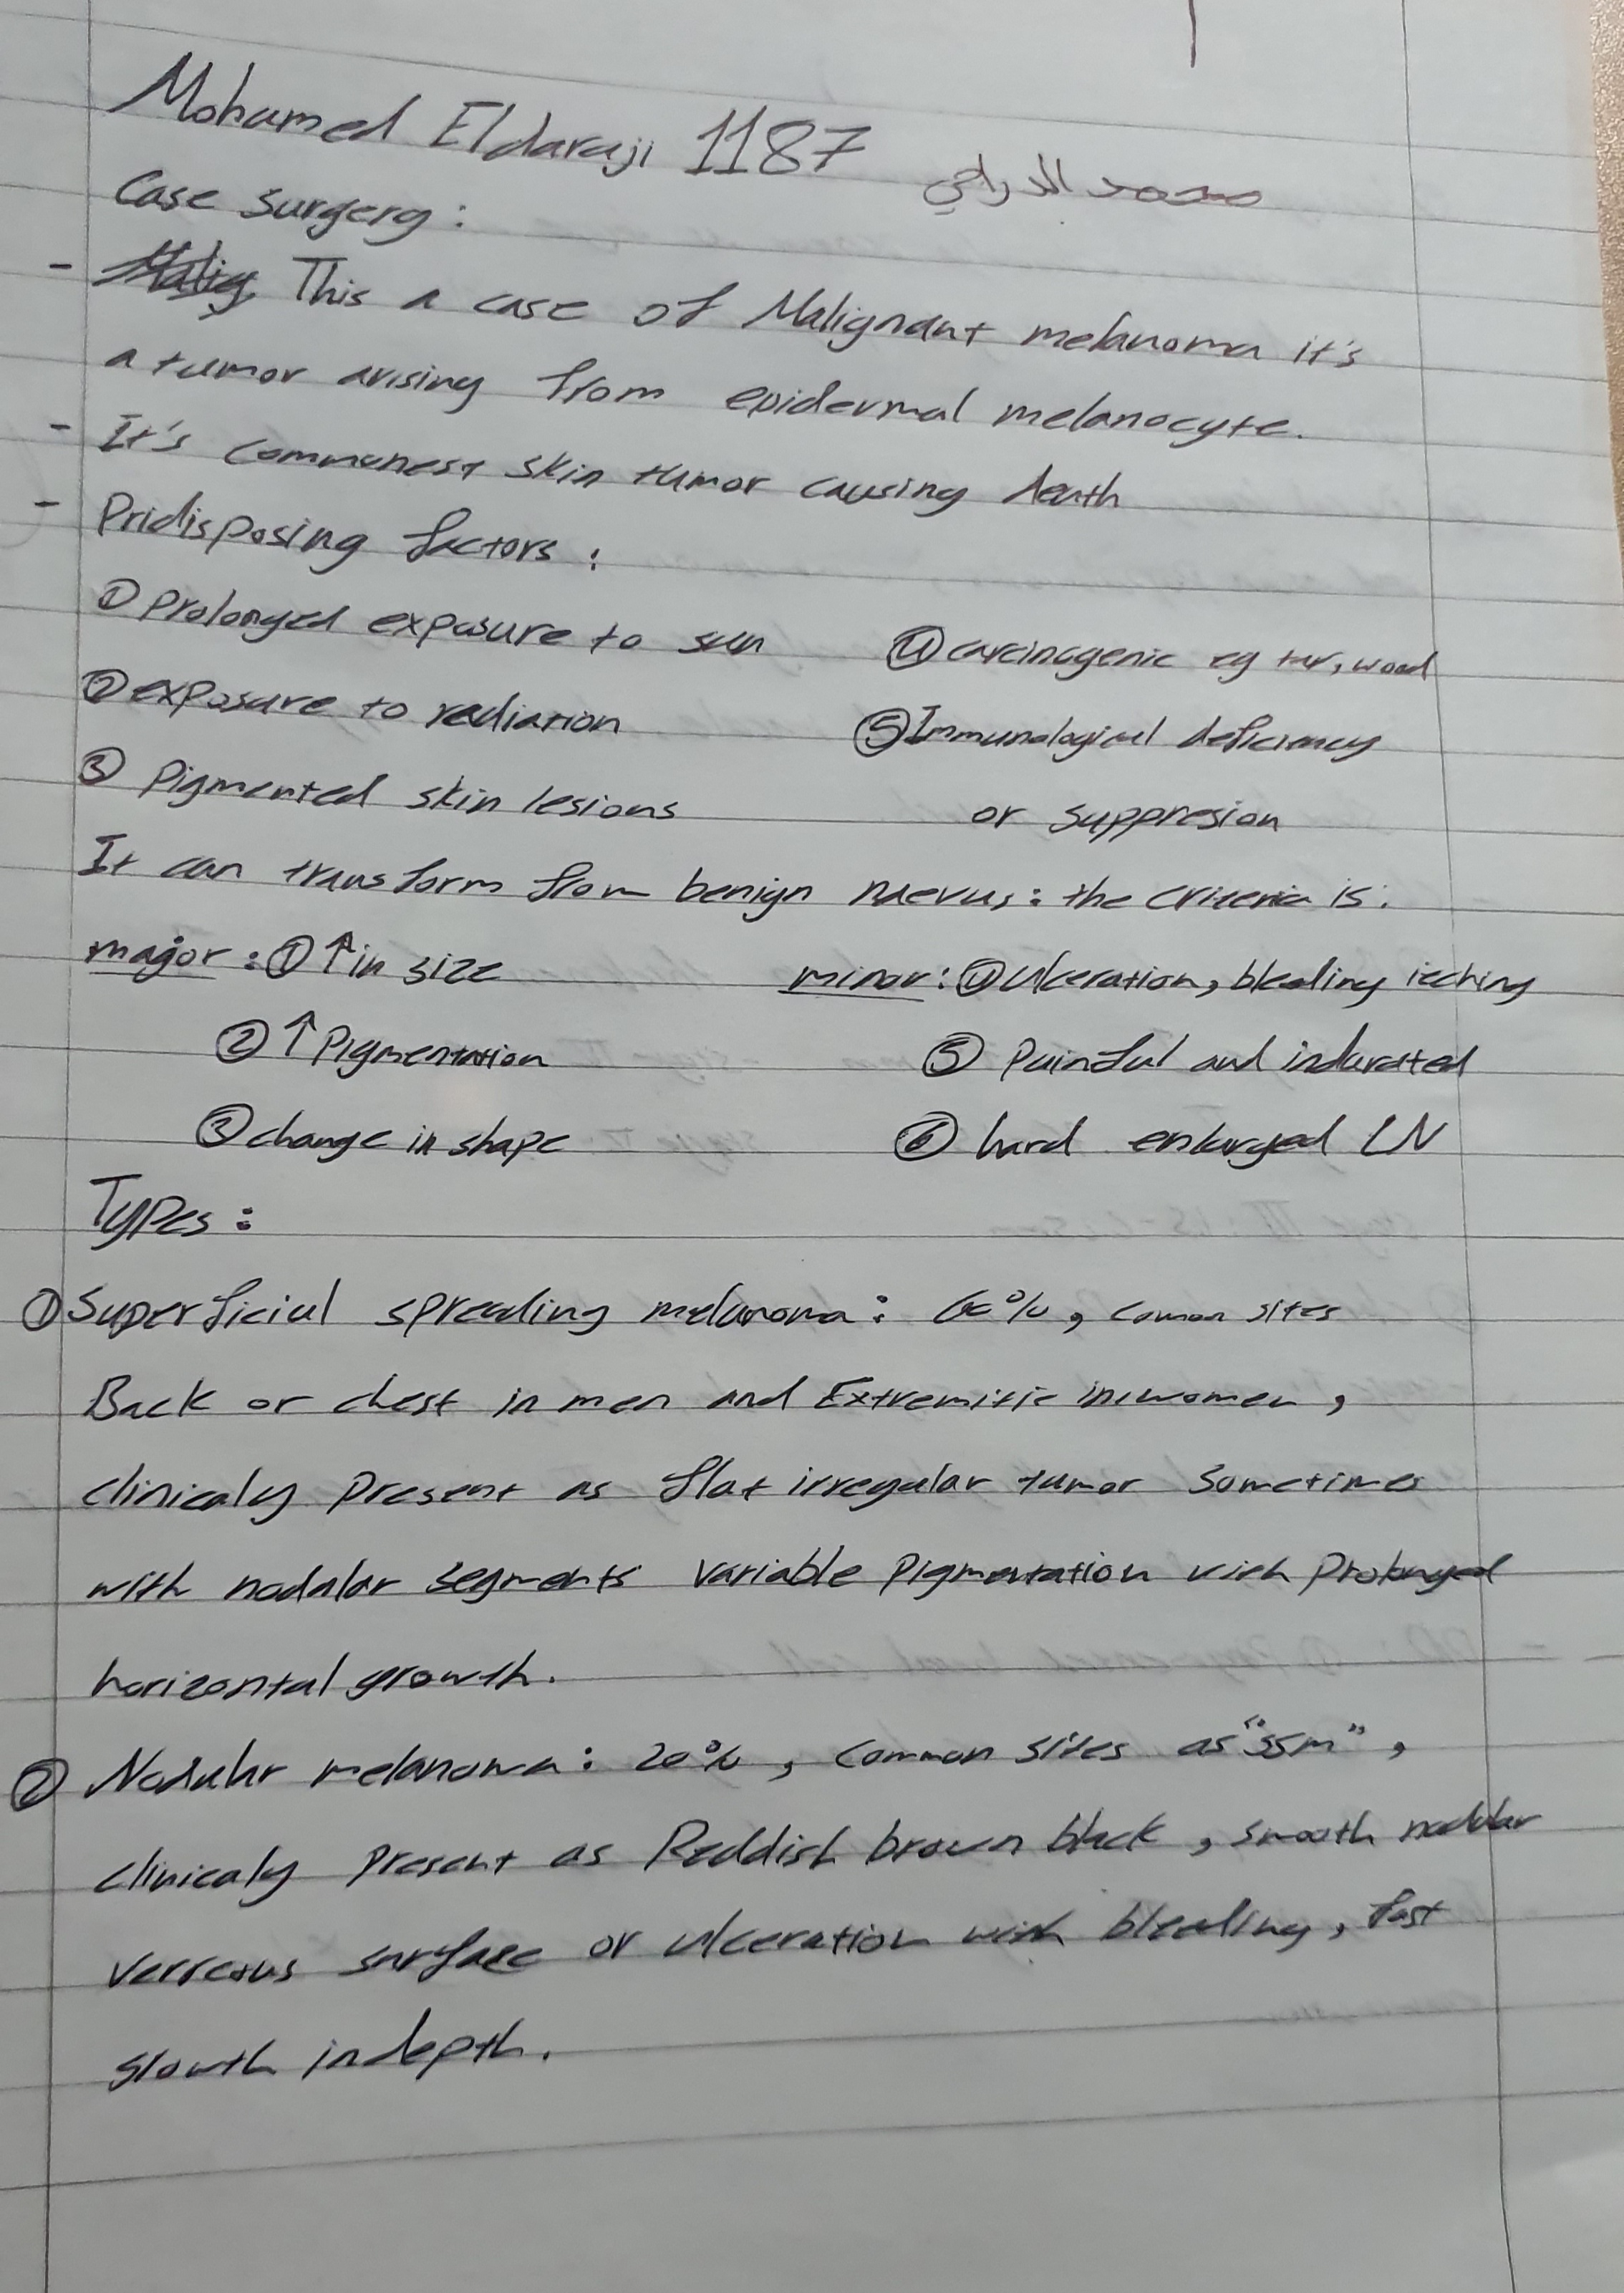 Mohamed Eldaraji 1187 محمد الدراجي
Case surgerg :
- This a case of Malignant melanoma it's
a tumor arising from epidermal melanocyte.
- It's commonest skin tumor causing death
- Pridisposing factors :
① Prolonged exposure to sun
④ carcinogenic eg tar, wood
② exposure to radiation
⑤ Immunological deficiency
③ Pigmented skin lesions
or suppresion
It can transform from benign naevus : the criteria is :
major : ① ↑ in size
minor : ④ Ulceration, bleeding itching
② ↑ Pigmentation
⑤ Painful and indurated
③ change in shape
⑥ hard enlarged LN
Types :
① Superficial spreading melanoma : 60%, comon sites
Back or chest in men and Extremitie in women ,
clinicaly present as flat irregular tumor sometimes
with nodular segments variable pigmentation with prolonged
horizontal growth.
② Nodular melanoma : 20% , common sites as "SSM" ,
clinicaly present as Reddish brown black , smooth nodular
surface or ulceration with bleeding , fast
growth in depth.